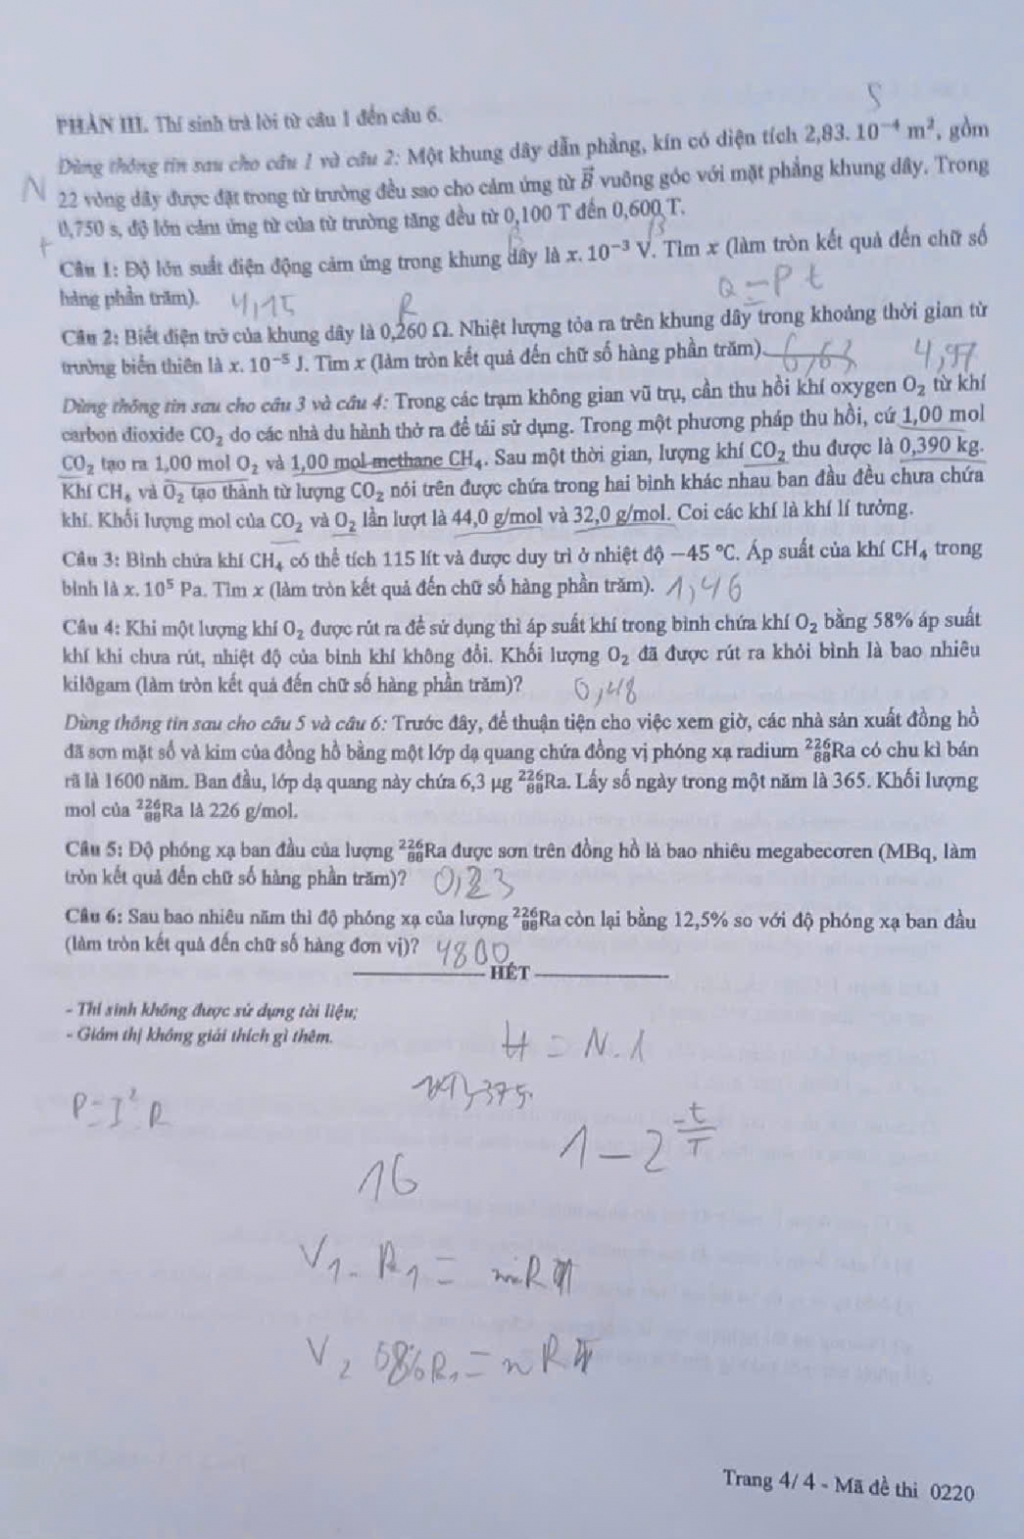 S
PHẦN III. Thí sinh trả lời từ câu 1 đến câu 6.
Dùng thông tin sau cho câu 1 và câu 2: Một khung dây dẫn phẳng, kín có diện tích 2,83. 10⁻⁴ m², gồm
N 22 vòng dây được đặt trong từ trường đều sao cho cảm ứng từ B⃗ vuông góc với mặt phẳng khung dây. Trong
t 0,750 s, độ lớn cảm ứng từ của từ trường tăng đều từ 0,100 T đến 0,600 T.
B B
Câu 1: Độ lớn suất điện động cảm ứng trong khung dây là x. 10⁻³ V. Tìm x (làm tròn kết quả đến chữ số
hàng phần trăm). 4,15 R Q = P t
Câu 2: Biết điện trở của khung dây là 0,260 Ω. Nhiệt lượng tỏa ra trên khung dây trong khoảng thời gian từ
trường biến thiên là x. 10⁻⁵ J. Tìm x (làm tròn kết quả đến chữ số hàng phần trăm). 6,63 4,97
Dùng thông tin sau cho câu 3 và câu 4: Trong các trạm không gian vũ trụ, cần thu hồi khí oxygen O₂ từ khí
carbon dioxide CO₂ do các nhà du hành thở ra để tái sử dụng. Trong một phương pháp thu hồi, cứ 1,00 mol
CO₂ tạo ra 1,00 mol O₂ và 1,00 mol methane CH₄. Sau một thời gian, lượng khí CO₂ thu được là 0,390 kg.
Khí CH₄ và O₂ tạo thành từ lượng CO₂ nói trên được chứa trong hai bình khác nhau ban đầu đều chưa chứa
khí. Khối lượng mol của CO₂ và O₂ lần lượt là 44,0 g/mol và 32,0 g/mol. Coi các khí là khí lí tưởng.
Câu 3: Bình chứa khí CH₄ có thể tích 115 lít và được duy trì ở nhiệt độ −45 °C. Áp suất của khí CH₄ trong
bình là x. 10⁵ Pa. Tìm x (làm tròn kết quả đến chữ số hàng phần trăm). 1,46
Câu 4: Khi một lượng khí O₂ được rút ra để sử dụng thì áp suất khí trong bình chứa khí O₂ bằng 58% áp suất
khí khi chưa rút, nhiệt độ của bình khí không đổi. Khối lượng O₂ đã được rút ra khỏi bình là bao nhiêu
kilôgam (làm tròn kết quả đến chữ số hàng phần trăm)? 0,48
Dùng thông tin sau cho câu 5 và câu 6: Trước đây, để thuận tiện cho việc xem giờ, các nhà sản xuất đồng hồ
đã sơn mặt số và kim của đồng hồ bằng một lớp dạ quang chứa đồng vị phóng xạ radium ²²⁶₈₈Ra có chu kì bán
rã là 1600 năm. Ban đầu, lớp dạ quang này chứa 6,3 μg ²²⁶₈₈Ra. Lấy số ngày trong một năm là 365. Khối lượng
mol của ²²⁶₈₈Ra là 226 g/mol.
Câu 5: Độ phóng xạ ban đầu của lượng ²²⁶₈₈Ra được sơn trên đồng hồ là bao nhiêu megabecơren (MBq, làm
tròn kết quả đến chữ số hàng phần trăm)? 0,23
Câu 6: Sau bao nhiêu năm thì độ phóng xạ của lượng ²²⁶₈₈Ra còn lại bằng 12,5% so với độ phóng xạ ban đầu
(làm tròn kết quả đến chữ số hàng đơn vị)? 4800
HẾT
- Thí sinh không được sử dụng tài liệu;
- Giám thị không giải thích gì thêm.
H = N. λ
P = I² R
1 − 2^(-t/T)
16
V₁.
V₂
Trang 4/ 4 - Mã đề thi 0220